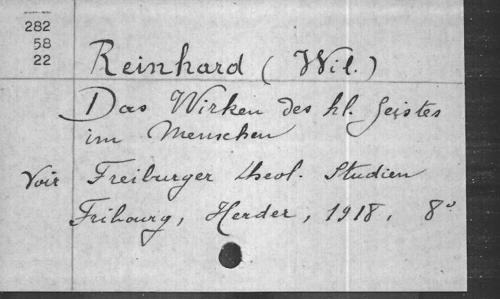 282
58
22
Reinhard (Wil.)
Das Wirken des hl. Geistes
im Menschen
Voir Freiburger theol. Studien
Fribourg, Herder, 1918, 8°